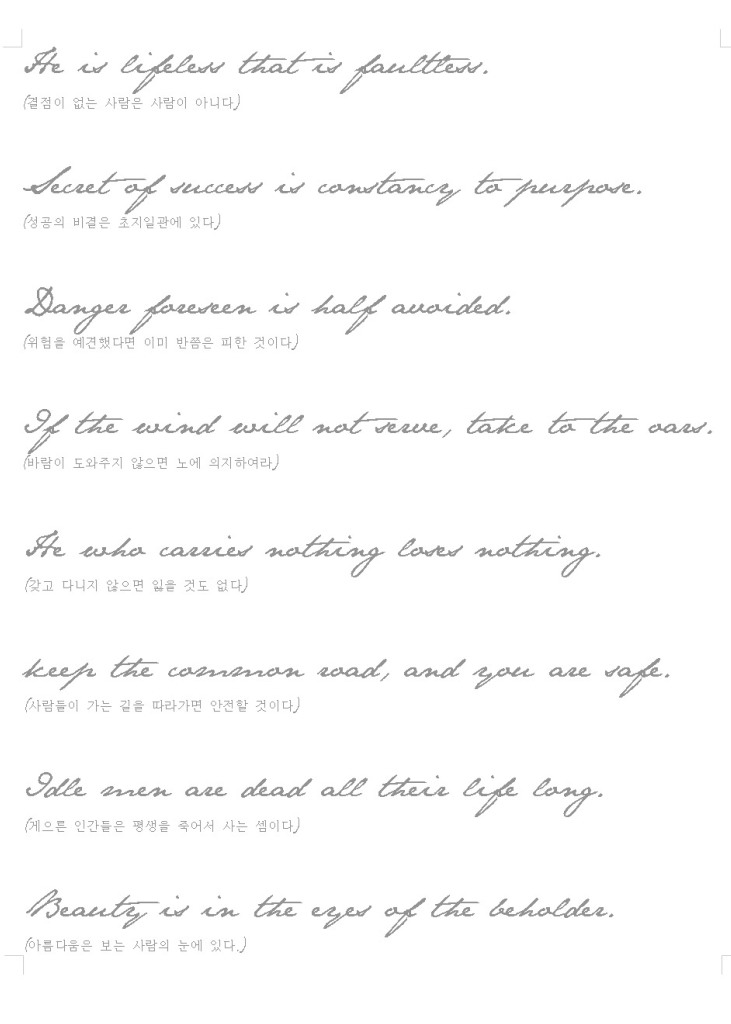 He is lifeless that is faultless.
(결점이 없는 사람은 사람이 아니다)
Secret of success is constancy to purpose.
(성공의 비결은 초지일관에 있다)
Danger foreseen is half avoided.
(위험을 예견했다면 이미 반쯤은 피한 것이다)
If the wind will not serve, take to the oars.
(바람이 도와주지 않으면 노에 의지하여라)
He who carries nothing loses nothing.
(갖고 다니지 않으면 잃을 것도 없다)
keep the common road, and you are safe.
(사람들이 가는 길을 따라가면 안전할 것이다)
Idle men are dead all their life long.
(게으른 인간들은 평생을 죽어서 사는 셈이다)
Beauty is in the eyes of the beholder.
(아름다움은 보는 사람의 눈에 있다.)